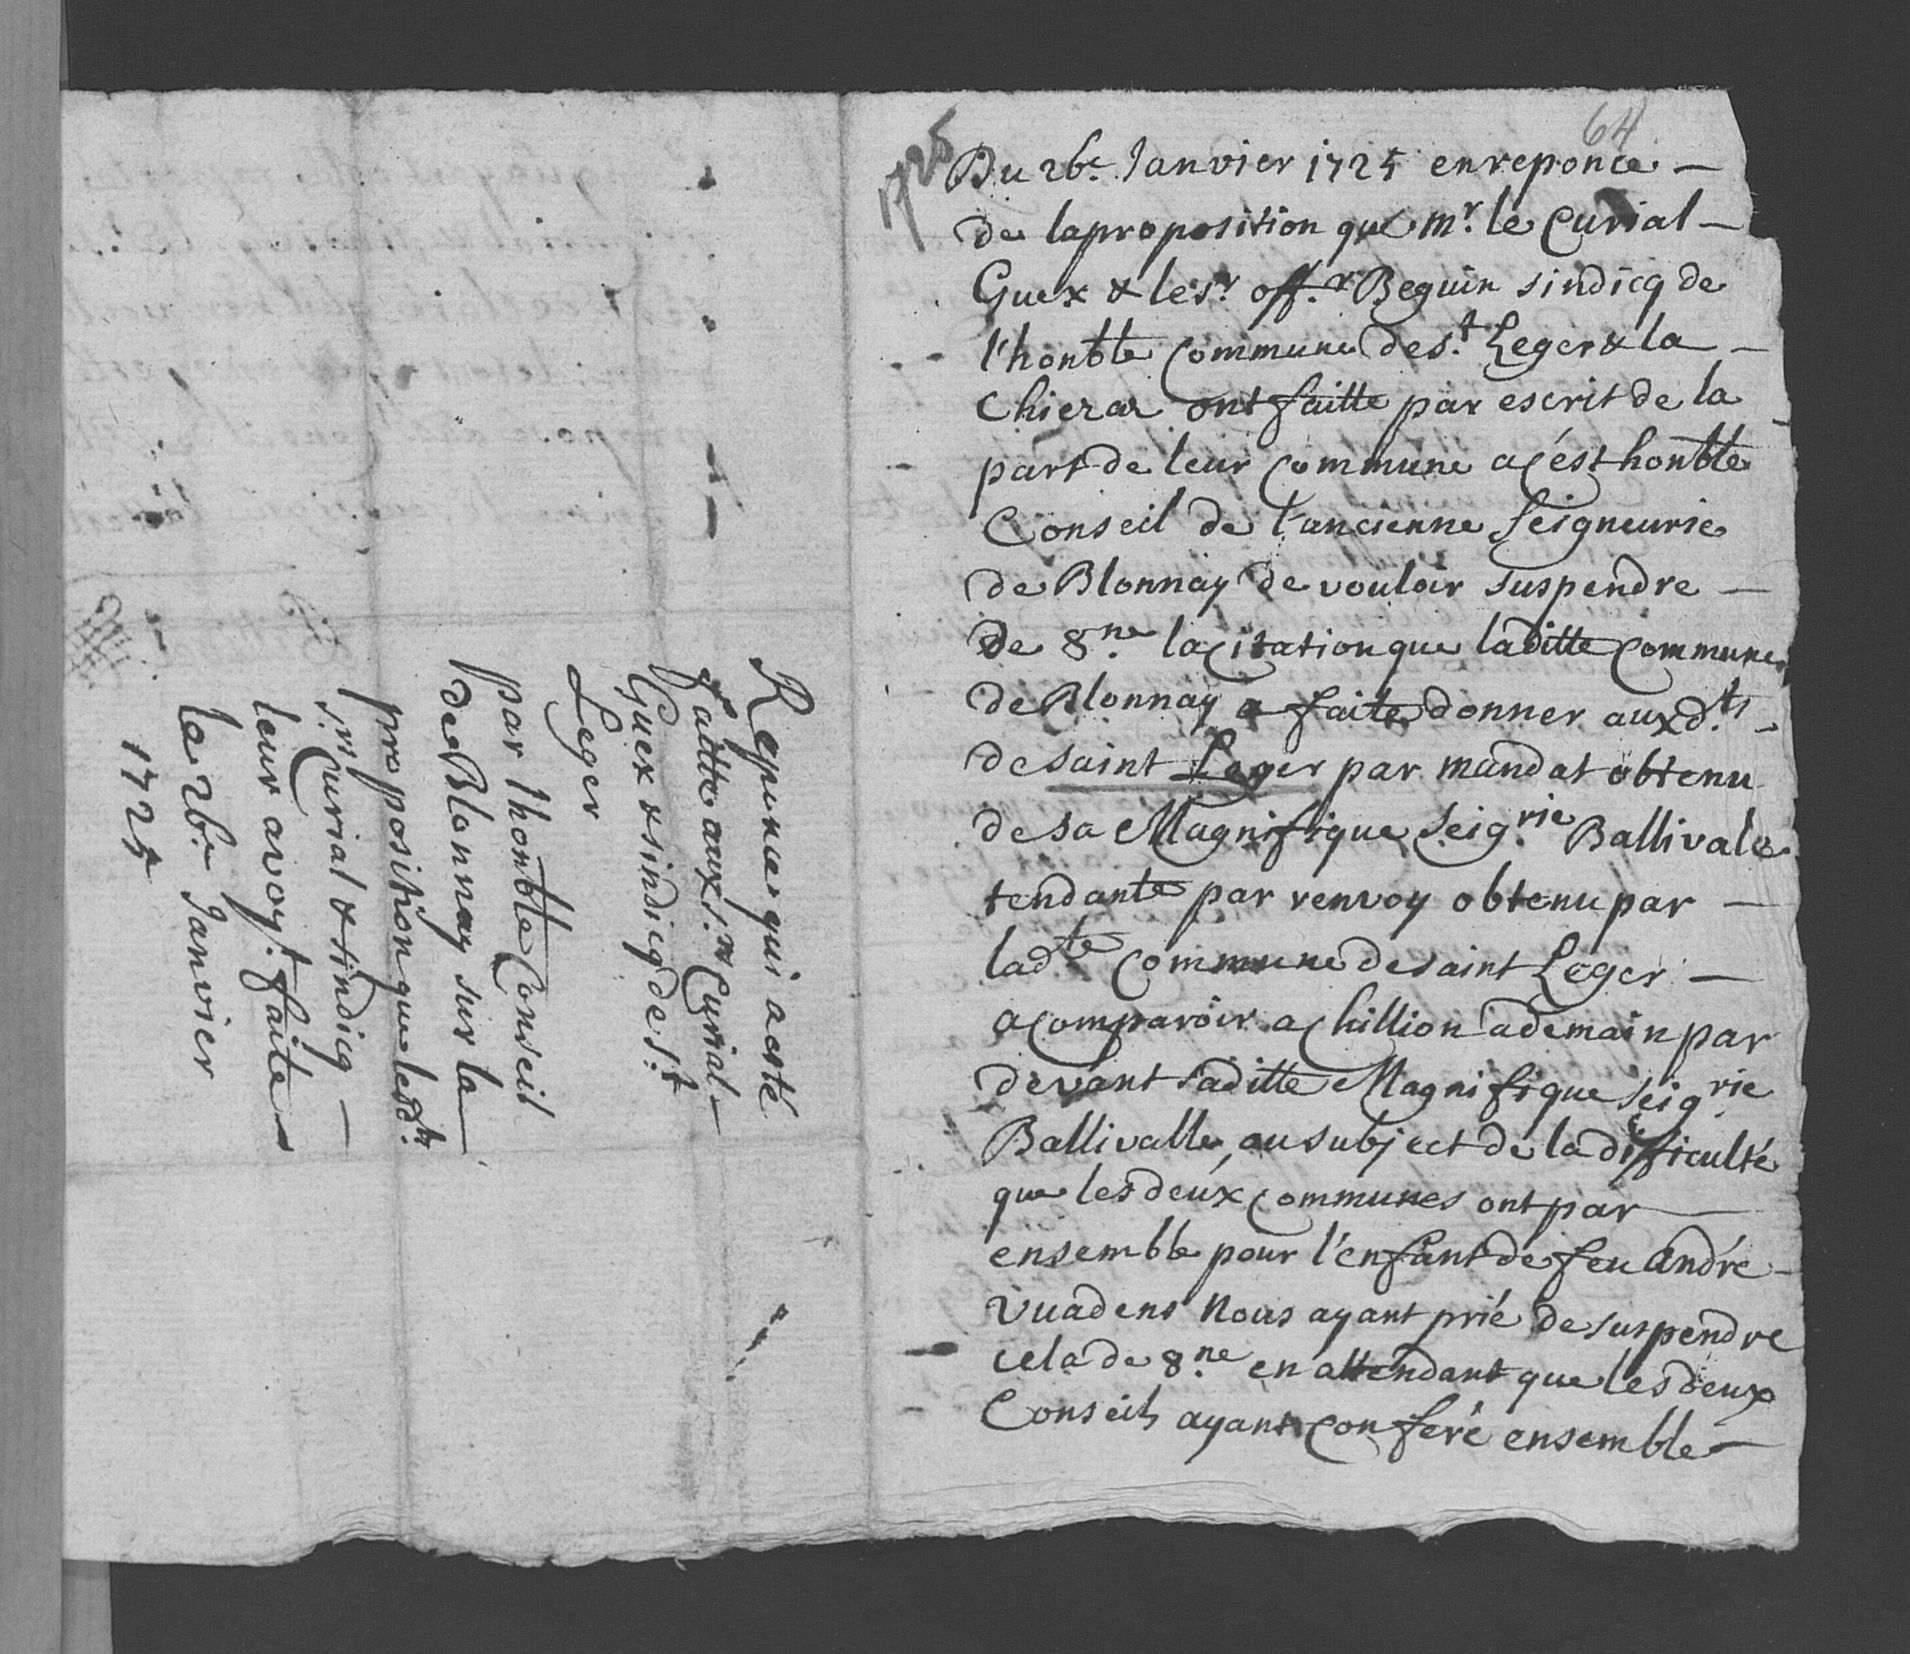 64
1725
Du 26e. Janvier 1725 en reponce —
de la proposition que mr. le Curial —
Guex & le sr. offr. Beguin sindicq de
l'honble Commune de st. Leger & la —
Chieraz ont faitte par escrit de la
part de leur Commune a cést honble
Conseil de l'ancienne seigneurie
de Blonnay de vouloir suspendre —
de 8ne. la citation que laditte Commune
de Blonnay a faite donner auxdts. —
de saint Leger par mandat obtenu
de sa Magnifique Seigrie. Ballivale
tendante par renvoy obtenu par —
ladte Commune de saint Leger —
a comparoir a Chillion a demain par
devant saditte Magnifique Seigrie.
Ballivalle, au subject de la difficulté
que les deux Communes ont par —
ensemble pour l'enfant de feu André —
Vuadens Nous ayant prié de suspendre
cela de 8ne. en attendant que les deux
Conseils ayant conferé ensemble —
Reponce qui a esté
faitte aux srs. Curial —
Guex & sindicq de st.
Leger
par l'honble Conseil
de Blonnay sur la —
proposition que lesdts.
srs. Curial & sindicq —
leur avoyt. faite
le 26e. Janvier
1725